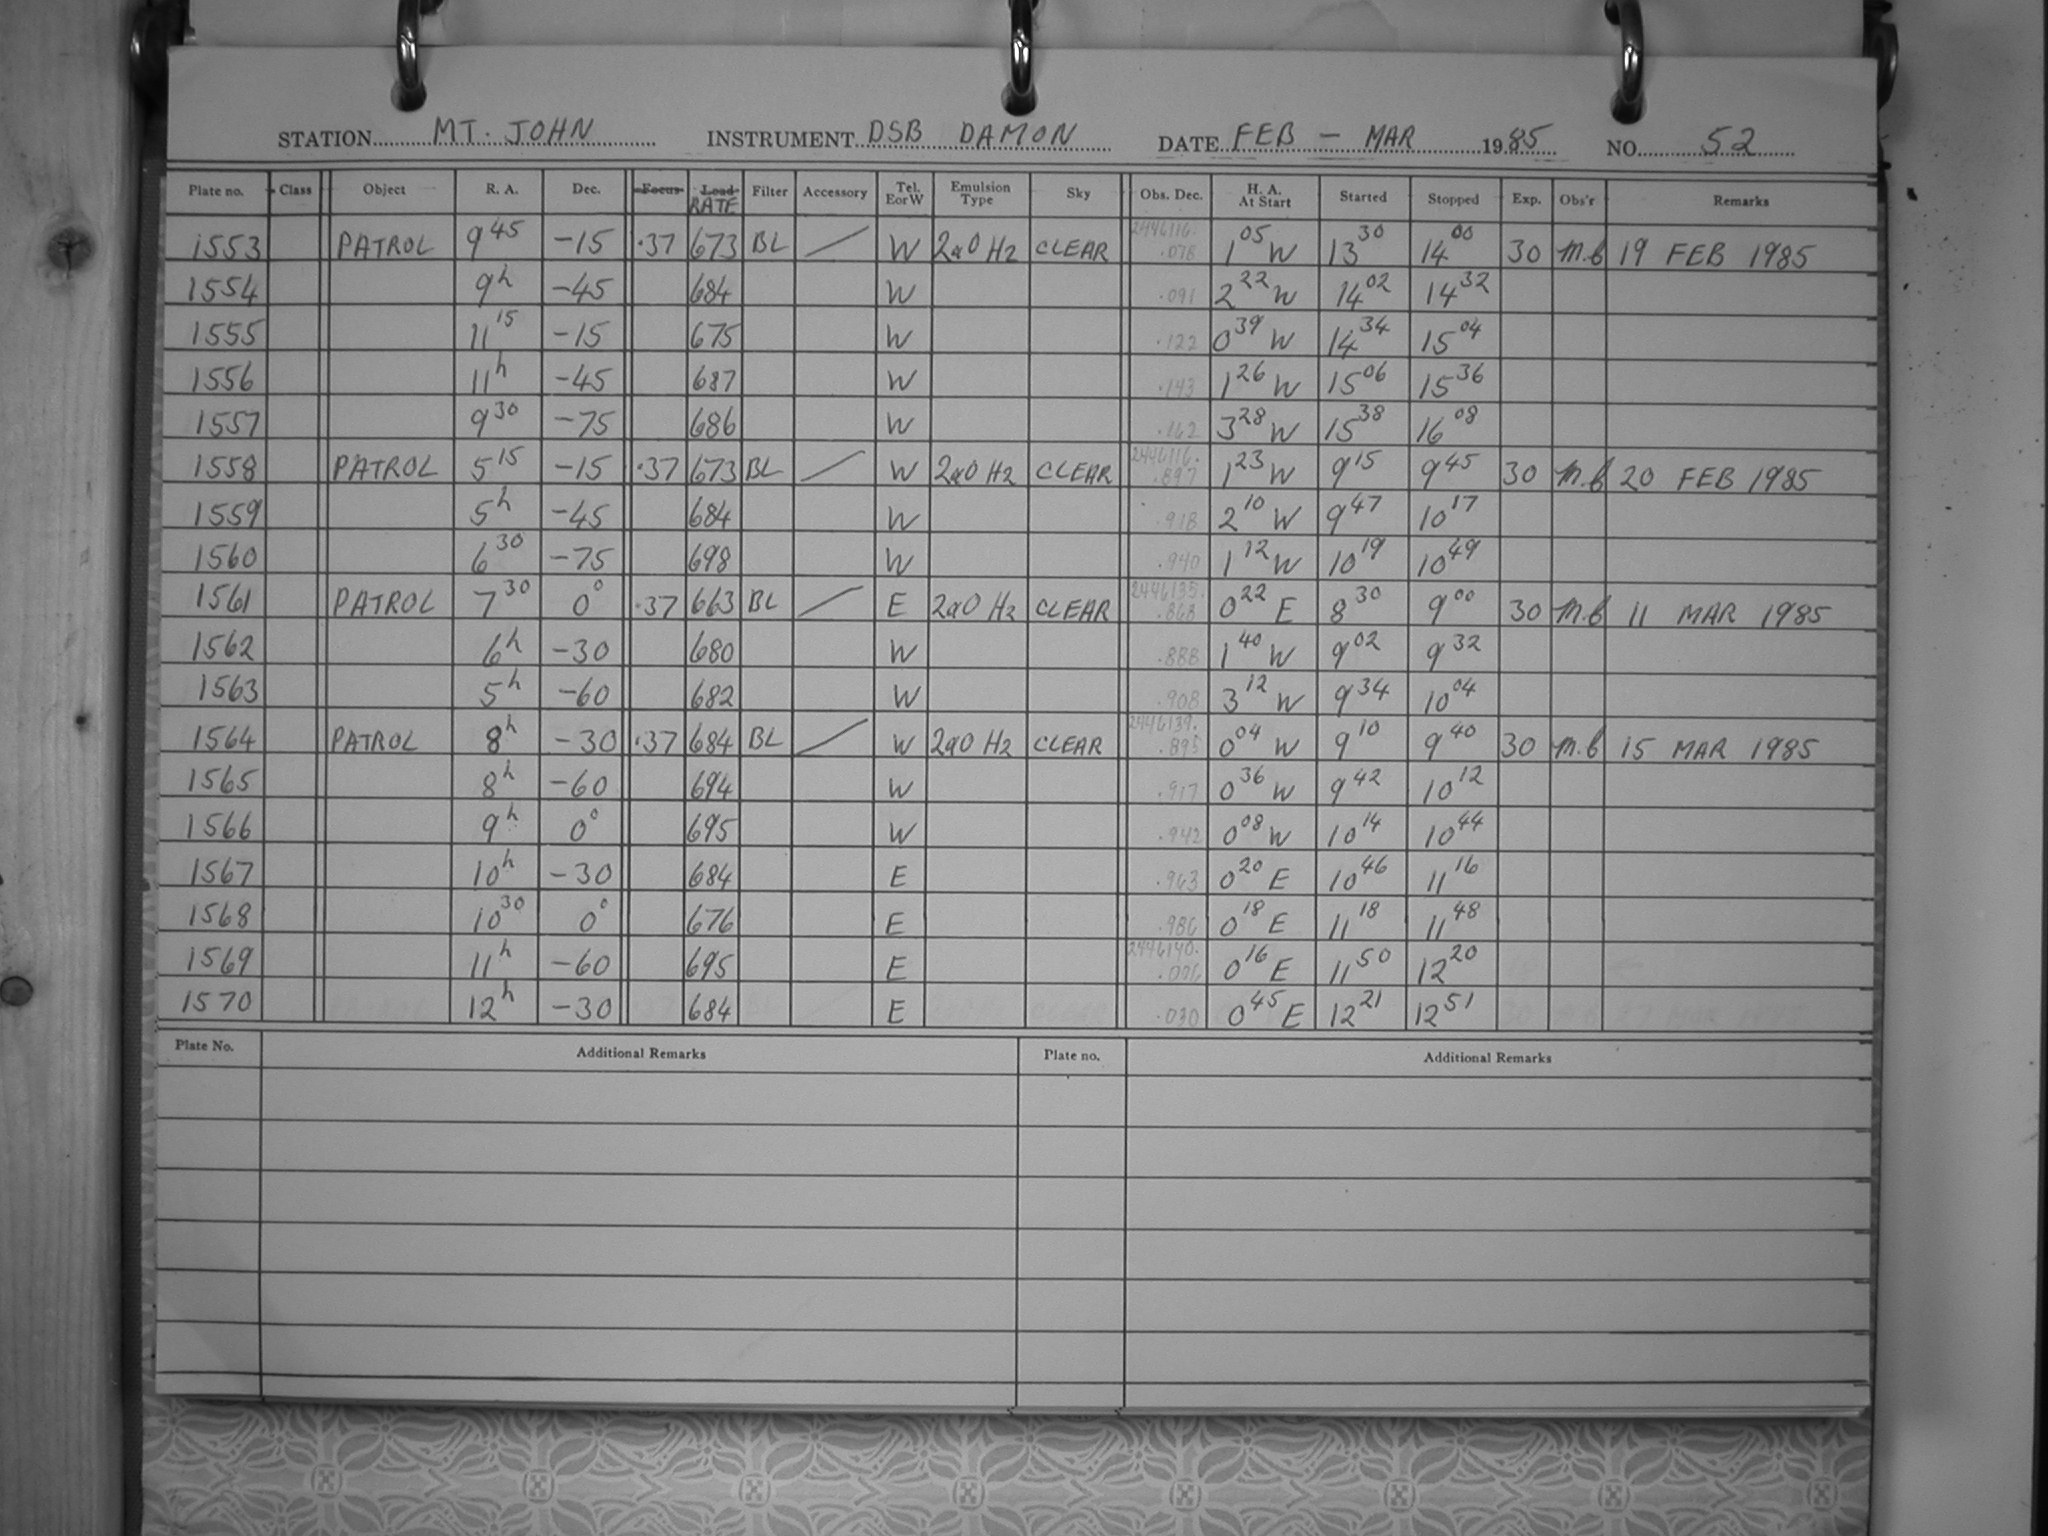 STATION MT. JOHN INSTRUMENT DSB DAMON DATE FEB - MAR 1985 NO. 52
Plate no. Class Object R. A. Dec. Focus Load RATE Filter Accessory Tel. E or W Emulsion Type Sky Obs. Dec. H. A. At Start Started Stopped Exp. Obs'r Remarks
1553 PATROL 9 45 -15 .37 673 BL / W 2a0 H2 CLEAR 2446116. .078 1 05 W 13 30 14 00 30 M.B 19 FEB 1985
1554 9h -45 684 W .091 2 22 W 14 02 14 32
1555 11 15 -15 675 W .122 0 39 W 14 34 15 04
1556 11h -45 687 W .143 1 26 W 15 06 15 36
1557 9 30 -75 686 W .162 3 28 W 15 38 16 08
1558 PATROL 5 15 -15 .37 673 BL / W 2a0 H2 CLEAR 2446116. .897 1 23 W 9 15 9 45 30 M.B 20 FEB 1985
1559 5h -45 684 W .918 2 10 W 9 47 10 17
1560 6 30 -75 698 W .940 1 12 W 10 19 10 49
1561 PATROL 7 30 0° .37 663 BL / E 2a0 H2 CLEAR 2446135. .868 0 22 E 8 30 9 00 30 M.B 11 MAR 1985
1562 6h -30 680 W .888 1 40 W 9 02 9 32
1563 5h -60 682 W .908 3 12 W 9 34 10 04
1564 PATROL 8h -30 .37 684 BL / W 2a0 H2 CLEAR 2446139. .895 0 04 W 9 10 9 40 30 M.B 15 MAR 1985
1565 8h -60 694 W .917 0 36 W 9 42 10 12
1566 9h 0° 695 W .942 0 08 W 10 14 10 44
1567 10h -30 684 E .963 0 20 E 10 46 11 16
1568 10 30 0° 676 E .986 0 18 E 11 18 11 48
1569 11h -60 695 E 2446140. 0 16 E 11 50 12 20
1570 12h -30 684 E .030 0 45 E 12 21 12 51
Plate No. Additional Remarks Plate no. Additional Remarks